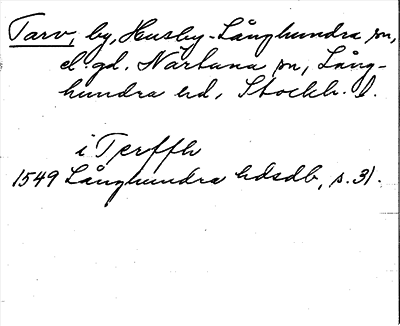 Tarv, by, Husby-Långhundra sn,
el. gd. Närtuna sn, Lång-
hundra hd, Stockh. l.
i Terffh
1549 Långhundra hdsdb, s. 31.